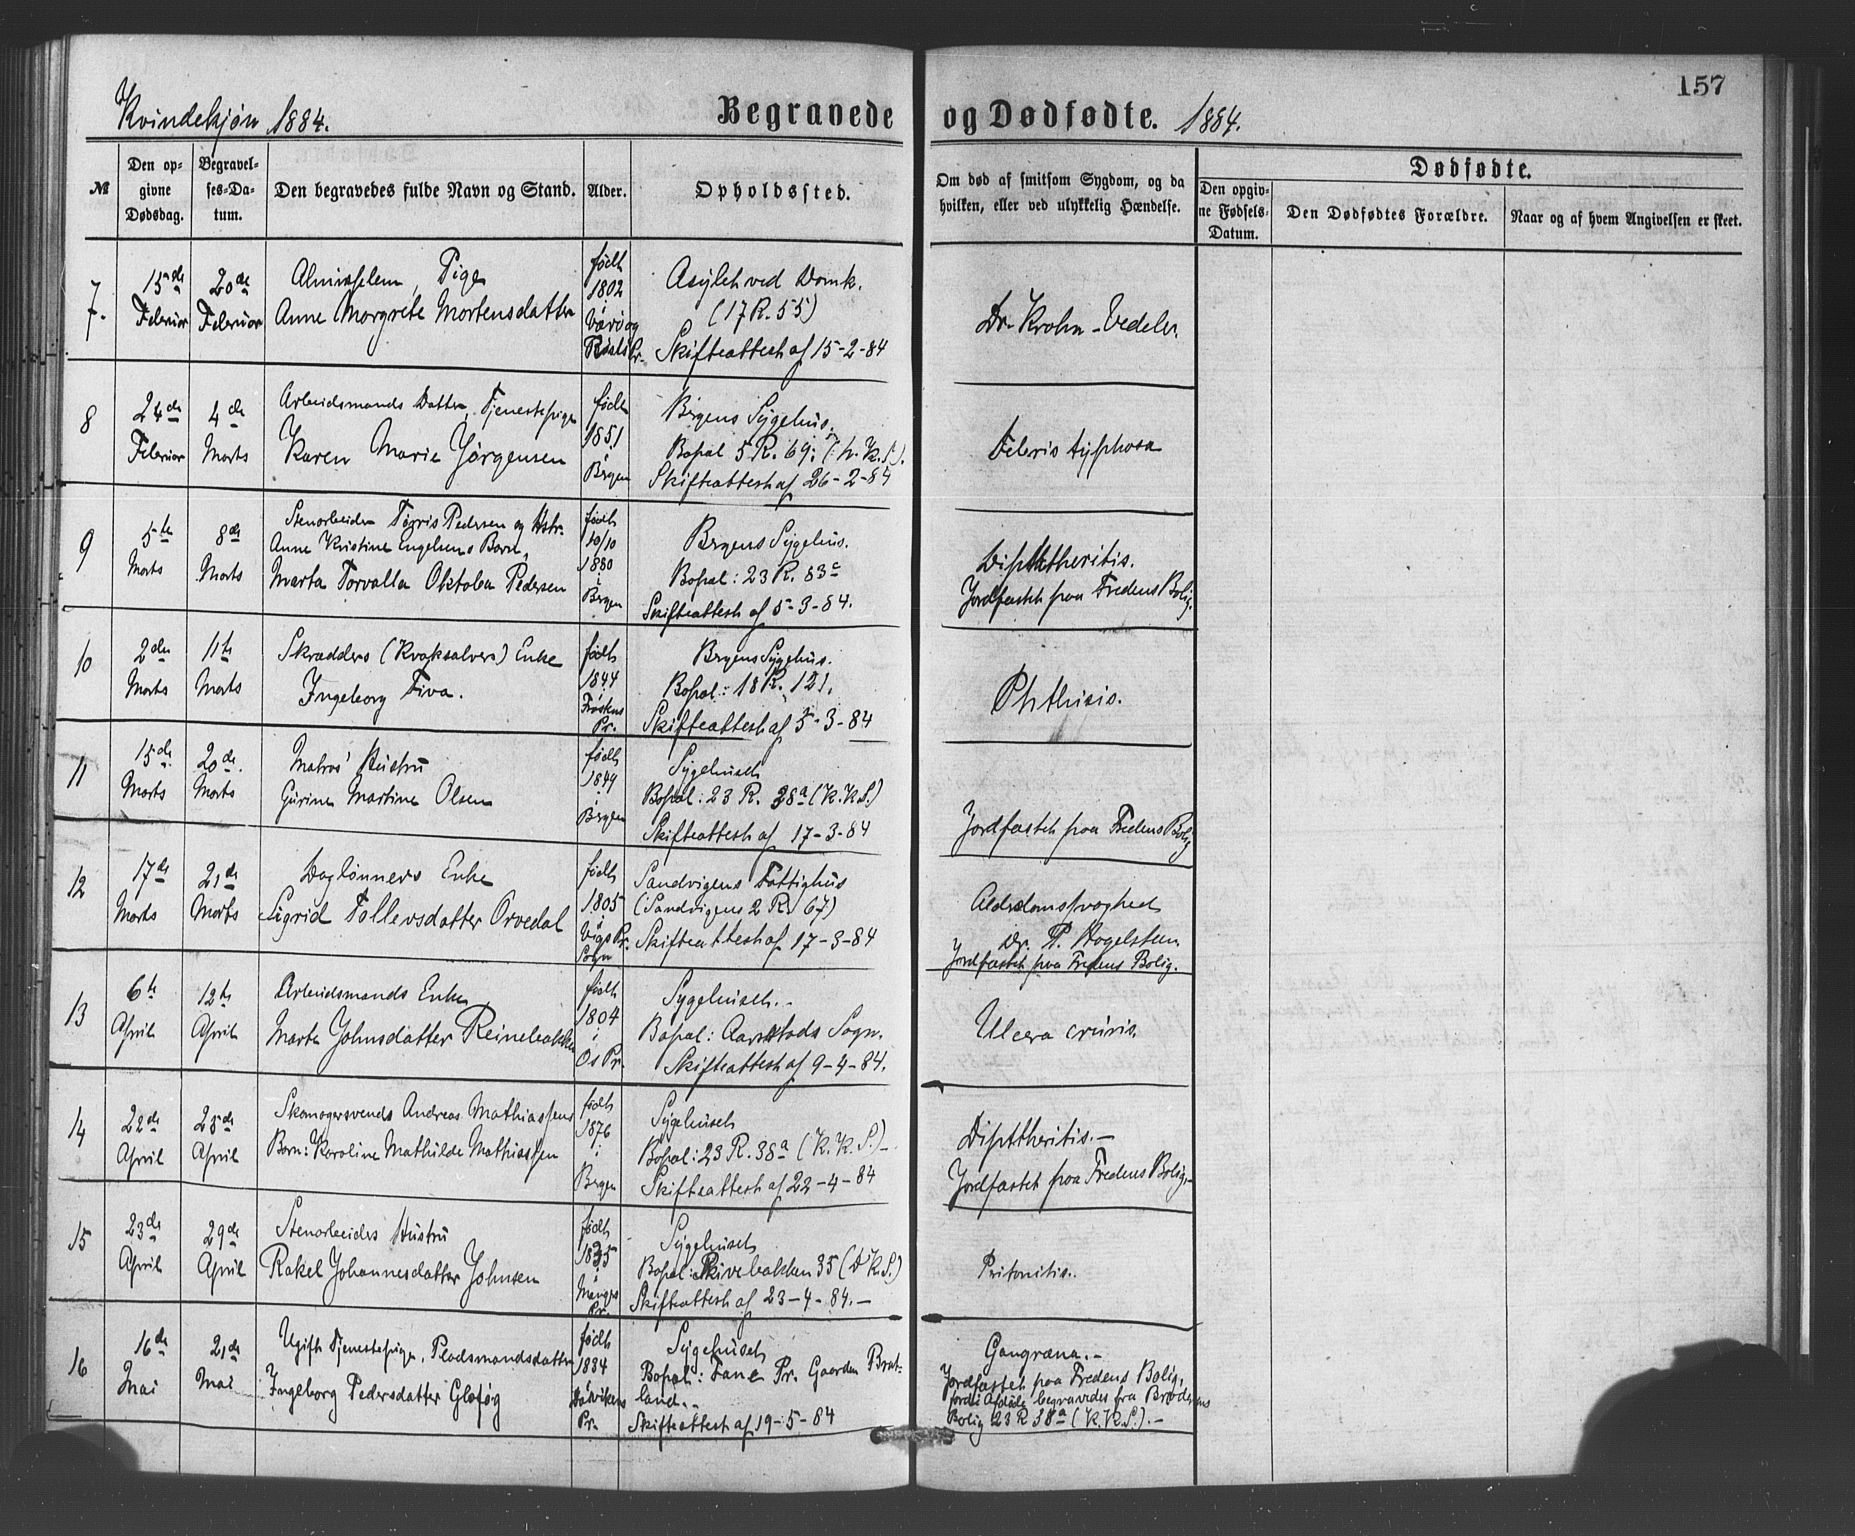 157
Kvindekjøn 1884.
Begravede og Dødfødte. 1884.
№
Den opgivne Dødsdag.
Begravelses-Datum.
Den begravedes fulde Navn og Stand.
Alder.
Opholdssted.
Om død af smitsom Sygdom, og da hvilken, eller ved ulykkelig Hændelse.
Dødfødte.
Den opgivne Fødsels-Datum.
Den Dødfødtes Forældre.
Naar og af hvem Angivelsen er skeet.
7.
15de Februar
20de Februar
Almisselem, Pige
Anne Margrete Mortensdatter
født 1802 i Værø og Røst Pr.
Asylet ved Domk.
(17 R. 55)
Skifteattest af 15-2-84
Dr. Krohn - Vedeler.
8
24de Februar
4de Marts
Arbeidsmands Datter, Tjenestepige
Karen Marie Jørgensen
født 1851 i Bergen
Bergens Sygehus.
Bopæl 5 R. 69:
Skifteattest af 26-2-84
Febris typhosa
9
5te Marts
8de Marts
Stenarbeider Tørris Pedersen og Hstr.
Anne Kristine Engelsens Barn,
Marta Torvalla Oktoba Pedersen
født 10/10 1880 i Bergen
Bergens Sygehus.
Bopæl: 23 R. 83c
Skifteattest af 5-3-84.
Diphtheritis.
Jordfæstet paa Fredens Bolig.
10
2den Marts
11te Marts
Skrædders (Kvaksalvers) Enke
Ingeborg Tiva.
født 1844 i Pr.
Bergens Sygehus.
Bopæl: 18 R. 121.
Skifteattest af 5-3-84
Phthisis.
11
15de Marts
20de Marts
Matros' Hustru
Gurine Martine Olsen
født 1849 i Bergen
Sygehuset
Bopæl: 23 R. 28a (K.K.S.)
Skifteattest af 17-3-84
Jordfæstet paa Fredens Bolig
12
17de Marts
21de Marts
Daglønners Enke
Sigrid Tollevsdatter Orvedal
født 1805 i Vigs Pr. Sogn
Sandvigens Fattighus
(Sandvigens 2 R. 67)
Skifteattest af 17-3-84
Alderdomssvaghed
Dr. P. Hagelsteen
Jordfæstet paa Fredens Bolig.
13
6te April
12te April
Arbeidsmands Enke
Marta Johnsdatter Reinebakken
født 1804 i Os Pr.
Sygehuset.-
Bopæl: Aarstads Sogn.
Skifteattest af 9-4-84.
Ulcera cruris.
14
22de April
25de April
Skomagersvends Andreas Mathiassens
Barn: Karoline Mathilde Mathiassen
født 1876 i Bergen
Sygehuset
Bopæl: 23 R. 38a (K.K.S.)-
Skifteattest af 22-4-84
Diphtheritis.-
Jordfæstet paa Fredens Bolig.-
15
23de April
29de April
Stenarbeiders Hustru
Rakel Johannesdatter Johnsen
født 1835 i Mangers Pr.
Sygehuset
Bopæl: Skivebakken 35 (D.K.S.)
Skifteattest af 23-4-84.-
Peritonitis.
16
16de Mai
21de Mai
Ugift Tjenestepige, Pladsmandsdatter
Ingeborg Pedersdatter
født 1834 Pr.
Sygehuset
Bopæl: Fane Pr. Gaarden Bratland.-
Skifteattest af 19-5-84
Gangræna.-
Jordfæstet paa Fredens Bolig,
fordi Afdøde begravedes fra Broderens
Bolig 23 R 38a (K.K.S.).-